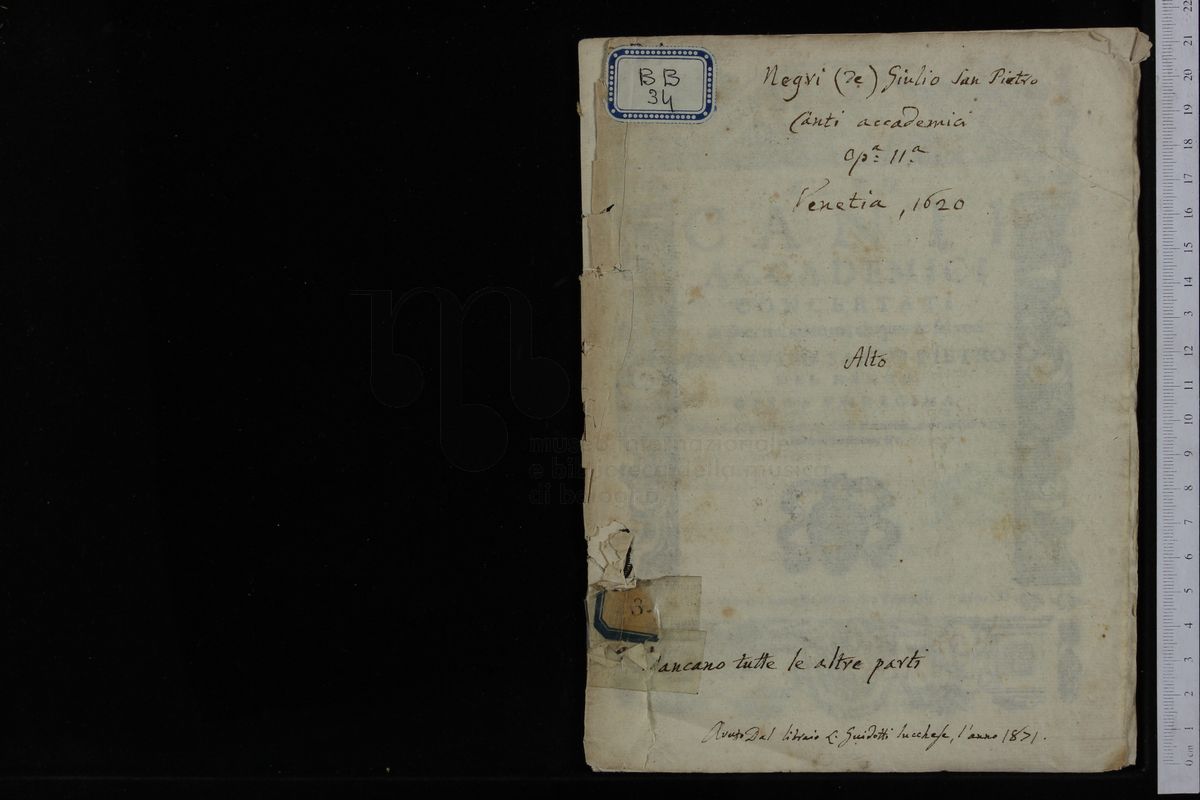 BB
34
Negri (De) Giulio San Pietro
Canti accademici
Opª. 11ª
Venetia, 1620
CANTI
ACCADEMICI
Alto
museo internazionale
e biblioteca della musica
di bologna
3
Mancano tutte le altre parti
Avuto Dal libraio L. Guidotti lucchese, l'anno 1871.
0 cm 1 2 3 4 5 6 7 8 9 10 11 12 3 14 15 16 17 18 19 20 21 22